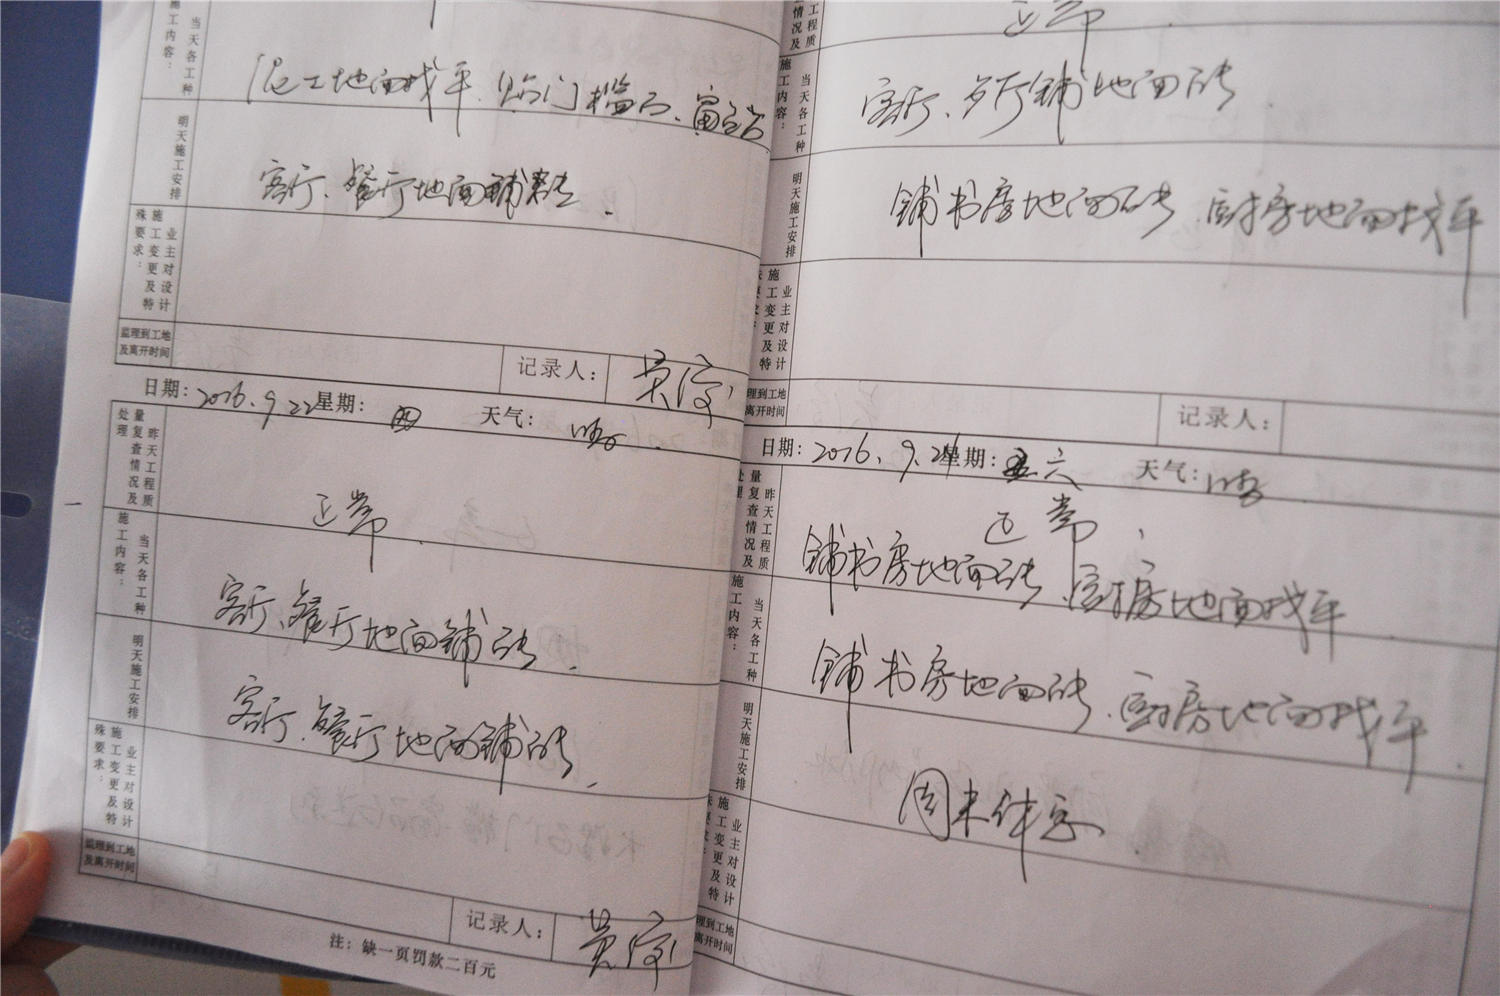 施工内容：
当天各工种
泥工地面找平.贴门槛石、窗台台
明天施工安排
客厅、餐厅地面铺砖.
业主对设计
施工变更及特
殊要求：
监理到工地
及离开时间
记录人：
黄
日期：2016.9.22星期：四 天气：晴.
昨天工程质
量复查情况及
处理
正常.
当天各工种
施工内容：
客厅、餐厅地面铺砖.
明天施工安排
客厅.餐厅地面铺砖.
业主对设计
施工变更及特
殊要求：
监理到工地
及离开时间
记录人：
黄
注：缺一页罚款二百元
工程质
情况及
正常
当天各工种
施工内容：
客厅、餐厅铺地面砖.
明天施工安排
铺书房地面砖.厨房地面找平
业主对设计
施工变更及特
理到工地
离开时间
记录人：
日期：2016.9.24星期：六 天气：晴.
昨天工程质
量复查情况及
处理
正常.
铺书房地面砖.厨房地面找平.
当天各工种
施工内容：
铺书房地面砖.厨房地面找平.
明天施工安排
周末休息
业主对设计
施工变更及特
理到工地
离开时间